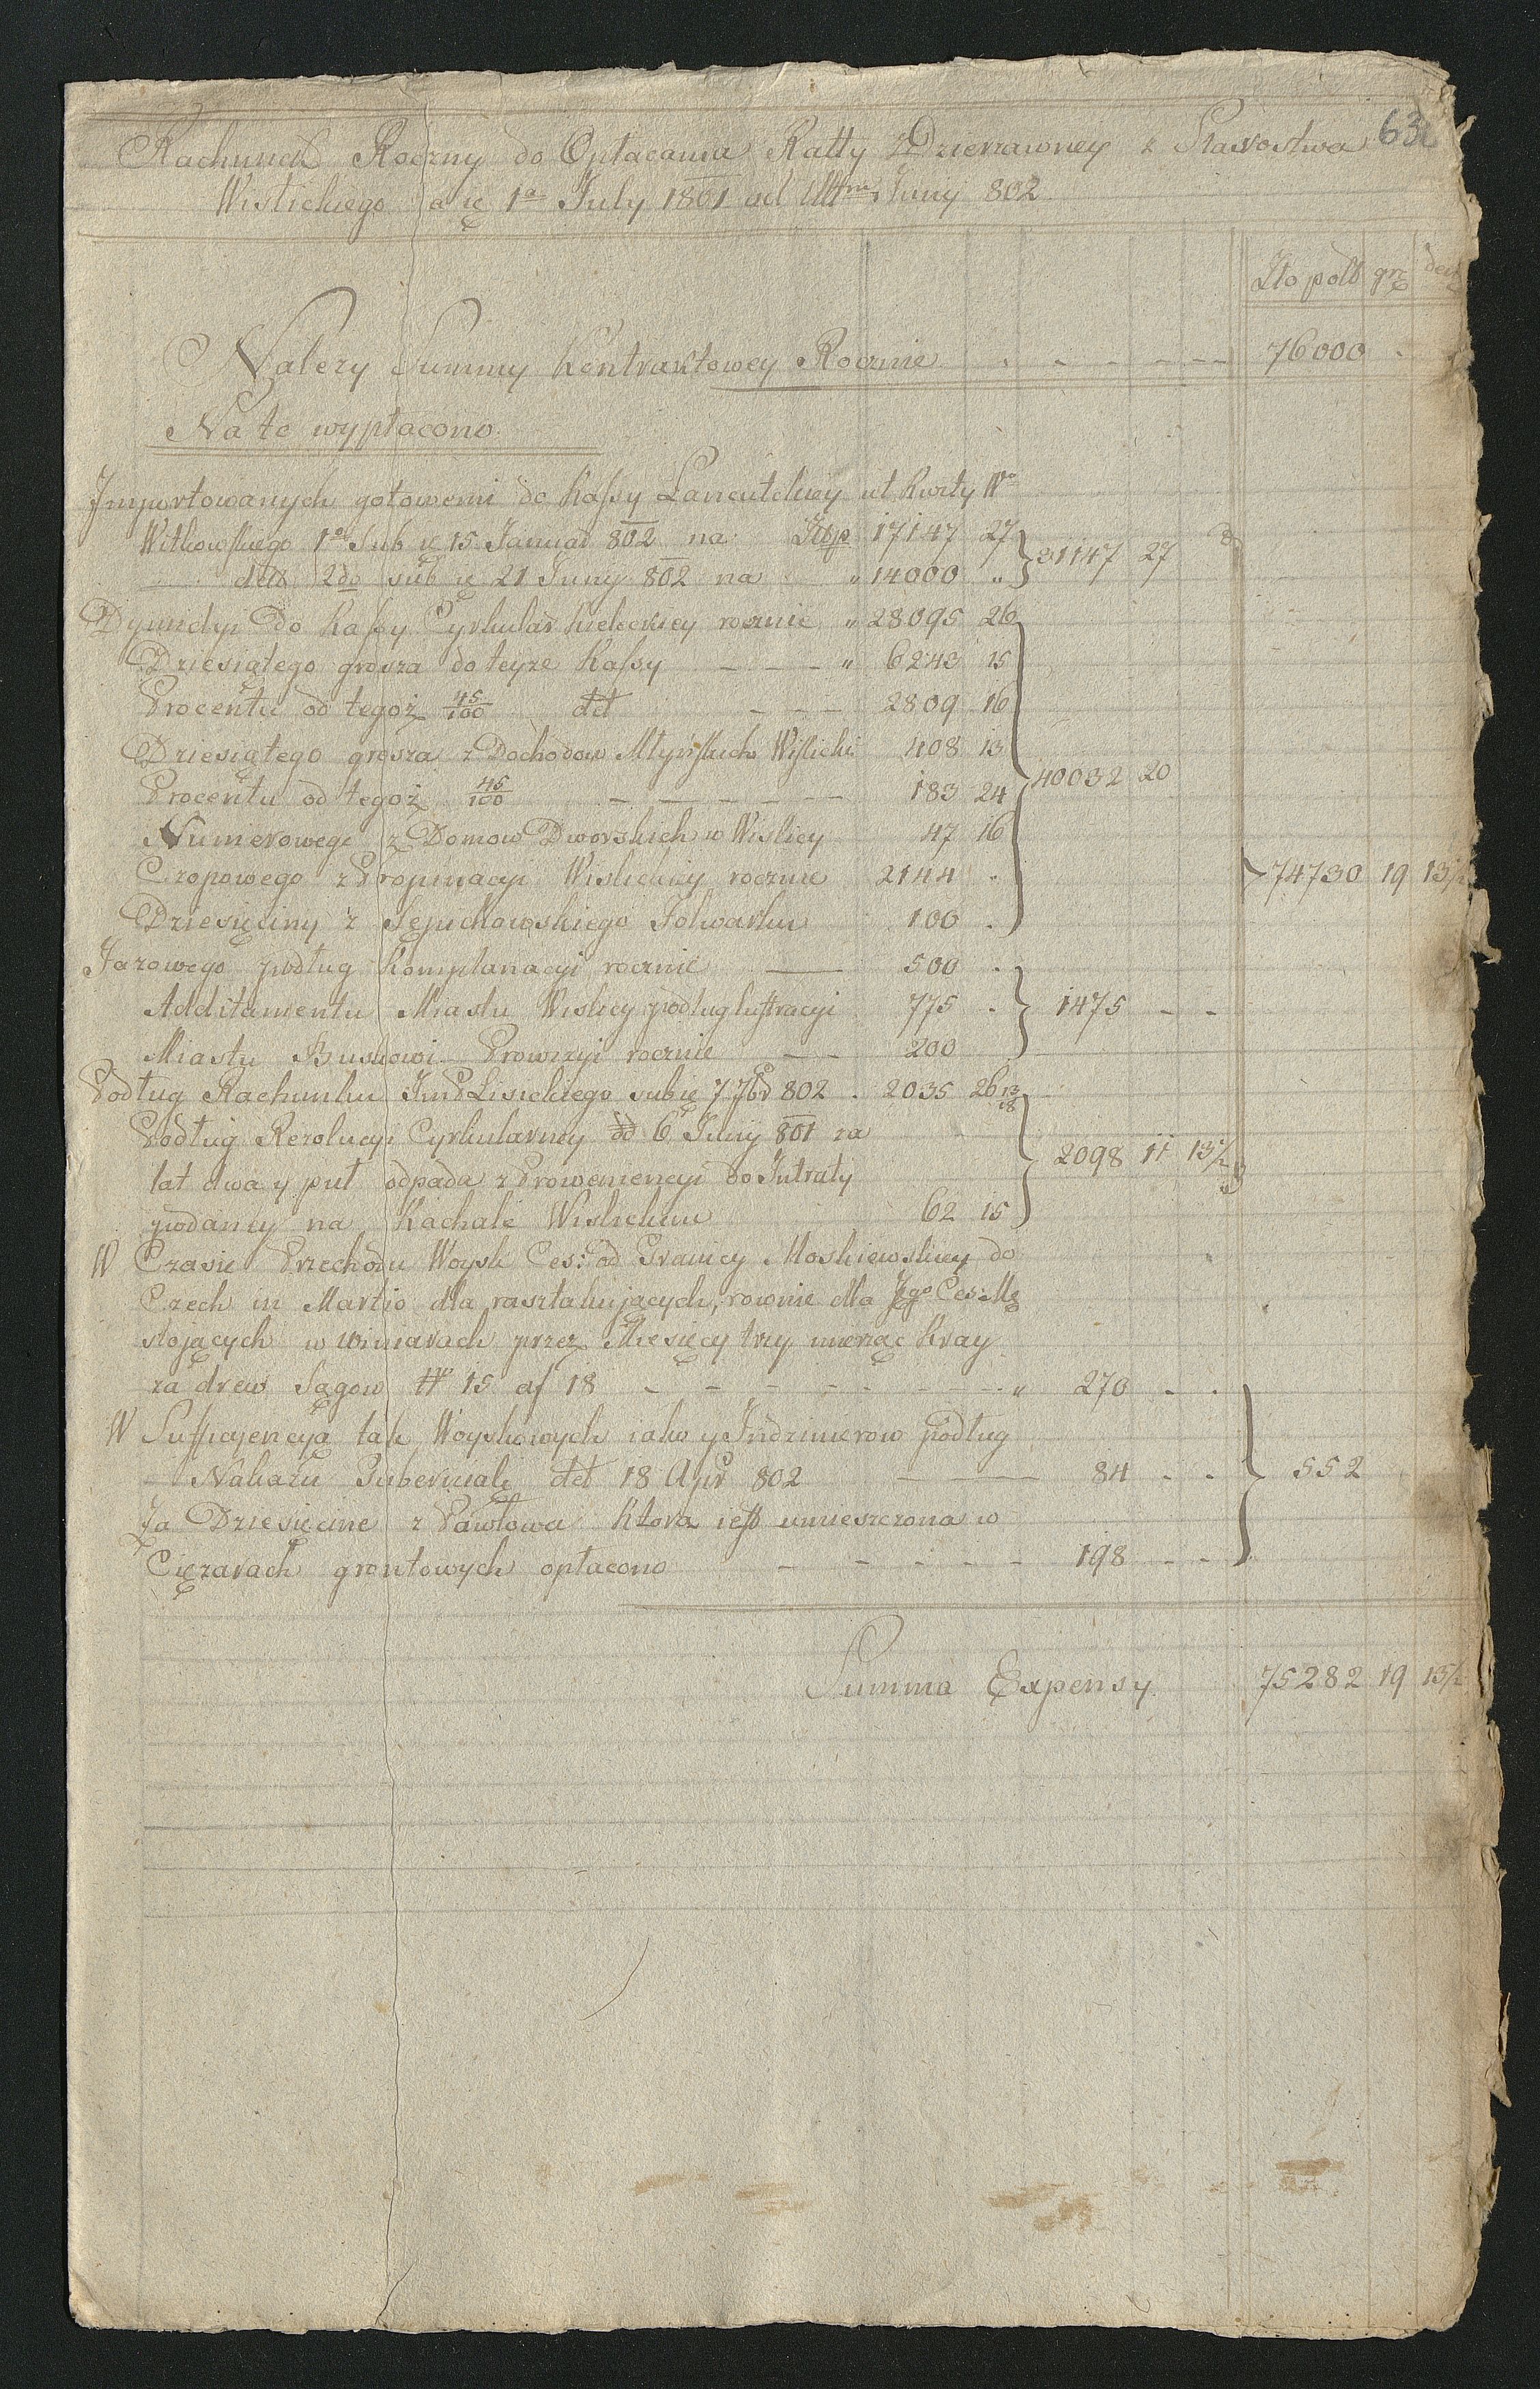 63
Rachunek Roczny do Opłacania Ratty Dzierzawney z Starostwa
Wislickiego a 1ª July 1801 ad Ult Juny 802
Zło pols gr
Nalezy Summy Kontraktowey Rocznie 76000
Na to wypłacono
Importowanych gotowemi do Kassy Lancutskiey ut Kwity Wº
Witkowskiego 1º Sub 15 Januar 802 na Złop 17147 27 31147 27
dett 2do sub 21 Juny 802 na " 14000 "
Dymidyi Do Kassy Cyrkular Kieleckiey rocznie " 28095 26
Dziesiątego grosza do teyze Kassy - - - " 6243 15
Procentu od tegoż 45/100 dtt - - - 2809 16
Dziesiątego grosza z Dochodow Młynskich Wislicki 408 13
Procentu od tegoż 45/100 - - - - - - 183 24 40032 20
Numerowego z Domow Dworskich w Wislicy 47 16
Czopowego z Propinacyi Wislickiey rocznie 2144 . 74730 19 13/2
Dziesięciny z Folwarku 100 .
Jazowego podług Komplanacyi rocznie — 500 .
Additamentu Miastu Wislicy podług lustracyi 775 . 1475 - -
Miastu Buskowi Prowizyi rocznie — 200
Podług Rachunku JmP Lisickiego sub 7 7br 802 . 2035 26 13/18
Podług Rezolucyi Cyrkularney dd 6 Juny 801 za
lat dwa y puł odpada z Prowenencyi do Intraty 2098 11 13/2
podaney na Kachale Wislickim 62 15
W Czasie Przechodu Woysk Ces: od Granicy Moskiewskiey do
Czech in Martio dla rosztakujących, rownie dla Jego Ces: Mę
stojących w Winiarach przez Miesięcy trzy mierząc Kray
za drew Sągow # 15 af 18 - - - - - - - " 270 - .
W Sufficyencyą tak Woyskowych iako y Indzinierow podług
Nakazu Guberniali dtt 18 Apr 802 — 84 - . 552
Za Dziesięcine z Pawłowa Ktora iest umieszczona w
Cięzarach grontowych opłacono - - - - - - 198 - -
Summa Expensy 75282 19 13/2